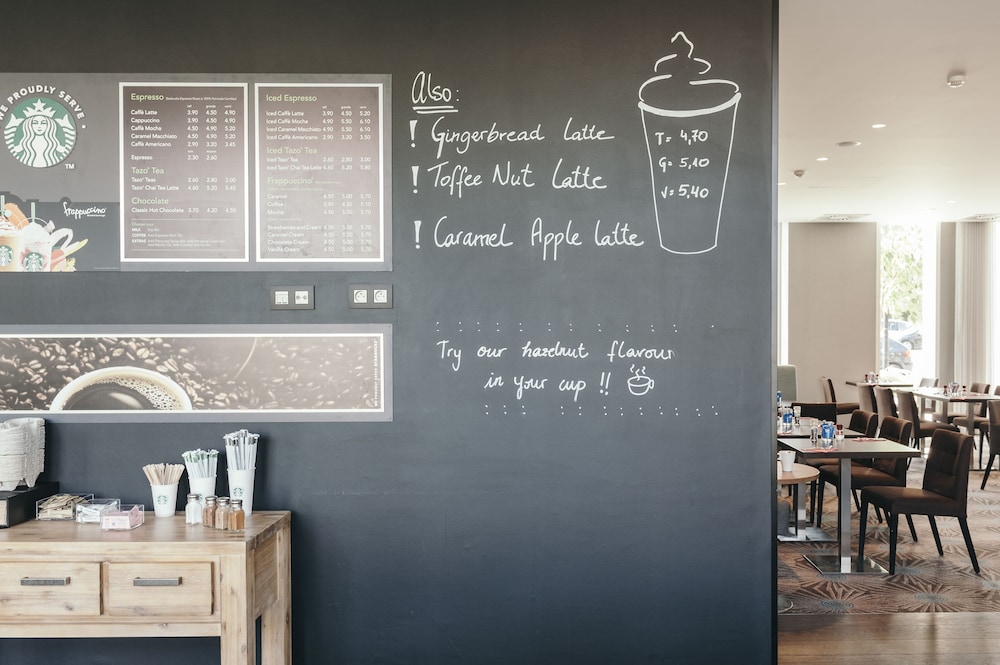 WE PROUDLY SERVE
TM
Frappuccino
Espresso
tall grande venti
Caffè Latte 3.90 4.50 4.90
Cappuccino 3.90 4.50 4.90
Caffè Mocha 4.50 4.90
Caramel Macchiato 4.50 4.90 5.20
Caffè Americano 2.90 3.20 3.45
Espresso 2.30 2.60
Tazo® Tea
Tazo® Teas 2.60 2.80 3.00
Tazo® Chai Tea Latte 4.60 5.20
Chocolate
Classic Hot Chocolate 3.70 4.20 4.50
MILK
COFFEE
EXTRAS
Iced Espresso
tall grande venti
Iced Caffè Latte 4.50 5.20
Iced Caffè Mocha 5.50 6.10
Iced Caramel Macchiato 4.90 5.50 6.10
Iced Caffè Americano 2.90 3.20 3.50
Iced Tazo® Tea
Iced Tazo® Tea 2.60 2.80 3.00
Iced Tazo® Chai Tea Latte 4.60 5.20
Frappuccino®
Caramel 4.50 5.00 5.70
Coffee
Mocha 4.50 5.00 5.70
Strawberries and Cream
Caramel Cream
Chocolate Cream
Vanilla Cream
Also:
! Gingerbread latte
! Toffee Nut Latte
! Caramel Apple latte
T = 4,70
G = 5,10
V = 5,40
Try our hazelnut flavour
in your cup !!